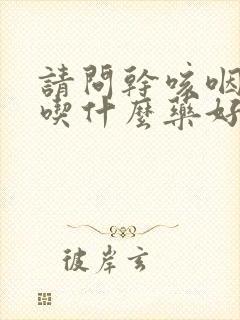 請問幹咳咽
喫什麼藥好
彼岸玄